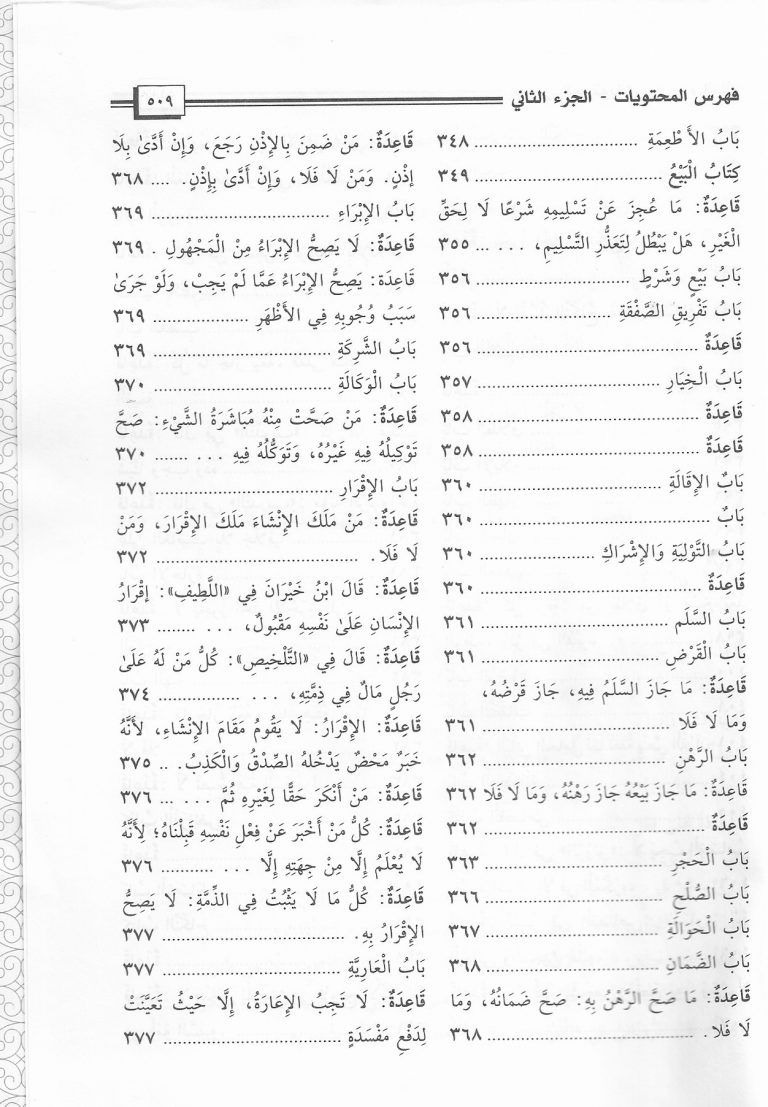 فهرس المحتويات - الجزء الثاني
٥٠٩
بَابُ الأَطْعِمَةِ ................................ ٣٤٨
كِتَابُ الْبَيْعُ ................................ ٣٤٩
قَاعِدَةٌ: مَا عُجِزَ عَنْ تَسْلِيمِهِ شَرْعًا لَا لِحَقِّ
الْغَيْرِ، هَلْ يَبْطُلُ لِتَعَذُّرِ التَّسْلِيمِ، . . . ... ٣٥٥
بَابُ بَيْعٍ وَشَرْطٍ ................................ ٣٥٦
بَابُ تَفْرِيقِ الصَّفْقَةِ ........................ ٣٥٦
قَاعِدَةٌ ........................................ ٣٥٦
بَابُ الْخِيَارِ ................................ ٣٥٧
قَاعِدَةٌ ........................................ ٣٥٨
قَاعِدَةٌ ........................................ ٣٥٨
بَابُ الإِقَالَةِ ................................ ٣٦٠
بَابٌ ........................................ ٣٦٠
بَابُ التَّوْلِيَةِ وَالإِشْرَاكِ .................... ٣٦٠
قَاعِدَةٌ ........................................ ٣٦٠
بَابُ السَّلَم ................................ ٣٦١
بَابُ الْقَرْضِ ................................ ٣٦١
قَاعِدَةٌ: مَا جَازَ السَّلَمُ فِيهِ، جَازَ قَرْضُهُ،
وَمَا لَا فَلَا ................................ ٣٦١
بَابُ الرَّهْنِ ................................ ٣٦٢
قَاعِدَةٌ: مَا جَازَ بَيْعُهُ جَازَ رَهْنُهُ، وَمَا لَا فَلَا ٣٦٢
قَاعِدَةٌ ........................................ ٣٦٢
بَابُ الْحَجْرِ ................................ ٣٦٣
بَابُ الصُّلْحِ ................................ ٣٦٦
بَابُ الْحَوَالَةِ ................................ ٣٦٧
بَابُ الضَّمَانِ ................................ ٣٦٨
قَاعِدَةٌ: مَا صَحَّ الرَّهْنُ بِهِ: صَحَّ ضَمَانُهُ، وَمَا
لَا فَلَا. ................................ ٣٦٨
قَاعِدَةٌ: مَنْ ضَمِنَ بِالإِذْنِ رَجَعَ، وَإِنْ أَدَّىٰ بِلَا
إذْنٍ. وَمَنْ لَا فَلَا، وَإِنْ أَدَّىٰ بِإِذْنٍ. .... ٣٦٨
بَابُ الإِبْرَاءِ ................................ ٣٦٩
قَاعِدَةٌ: لَا يَصِحُّ الإِبْرَاءُ مِنْ الْمَجْهُولِ . ٣٦٩
قَاعِدَة: يَصِحُّ الإِبْرَاءُ عَمَّا لَمْ يَجِبْ، وَلَوْ جَرَىٰ
سَبَبُ وُجُوبِهِ فِي الأَظْهَرِ ................ ٣٦٩
بَابُ الشَّرِكَةِ ................................ ٣٦٩
بَابُ الْوَكَالَةِ ................................ ٣٧٠
قَاعِدَةٌ: مَنْ صَحَّتْ مِنْهُ مُبَاشَرَةُ الشَّيْءِ: صَحَّ
تَوْكِيلُهُ فِيهِ غَيْرُهُ، وَتَوَكُّلُهُ فِيهِ . . . ...... ٣٧٠
بَابُ الإِقْرَارِ ................................ ٣٧٢
قَاعِدَةٌ: مَنْ مَلَكَ الإِنْشَاءَ مَلَكَ الإِقْرَارَ، وَمَنْ
لَا فَلَا. ................................ ٣٧٢
قَاعِدَةٌ: قَالَ ابْنُ خَيْرَانَ فِي «اللَّطِيفِ»: إقْرَارُ
الإِنْسَانِ عَلَىٰ نَفْسِهِ مَقْبُولٌ، . . . ........ ٣٧٣
قَاعِدَةٌ: قَالَ فِي «التَّلْخِيصِ»: كُلُّ مَنْ لَهُ عَلَىٰ
رَجُلٍ مَالٌ فِي ذِمَّتِهِ، . . . ............... ٣٧٤
قَاعِدَةٌ: الإِقْرَارُ: لَا يَقُومُ مَقَامَ الإِنْشَاءِ، لأَنَّهُ
خَبَرٌ مَحْضٌ يَدْخُلهُ الصِّدْقُ وَالْكَذِبُ. .. ٣٧٥
قَاعِدَةٌ: مَنْ أَنْكَرَ حَقًّا لِغَيْرِهِ ثُمَّ . . . ... ٣٧٦
قَاعِدَةٌ: كُلُّ مَنْ أَخْبَرَ عَنْ فِعْلِ نَفْسِهِ قَبِلْنَاهُ؛ لِأَنَّهُ
لَا يُعْلَمُ إلَّا مِنْ جِهَتِهِ إلَّا . . . .......... ٣٧٦
قَاعِدَةٌ: كُلُّ مَا لَا يَثْبُتُ فِي الذِّمَّةِ: لَا يَصِحُّ
الإِقْرَارُ بِهِ. ................................ ٣٧٧
بَابُ الْعَارِيَّةِ ................................ ٣٧٧
قَاعِدَةٌ: لَا تَجِبُ الإِعَارَةُ، إلَّا حَيْثُ تَعَيَّنَتْ
لِدَفْعِ مَفْسَدَةٍ ................................ ٣٧٧